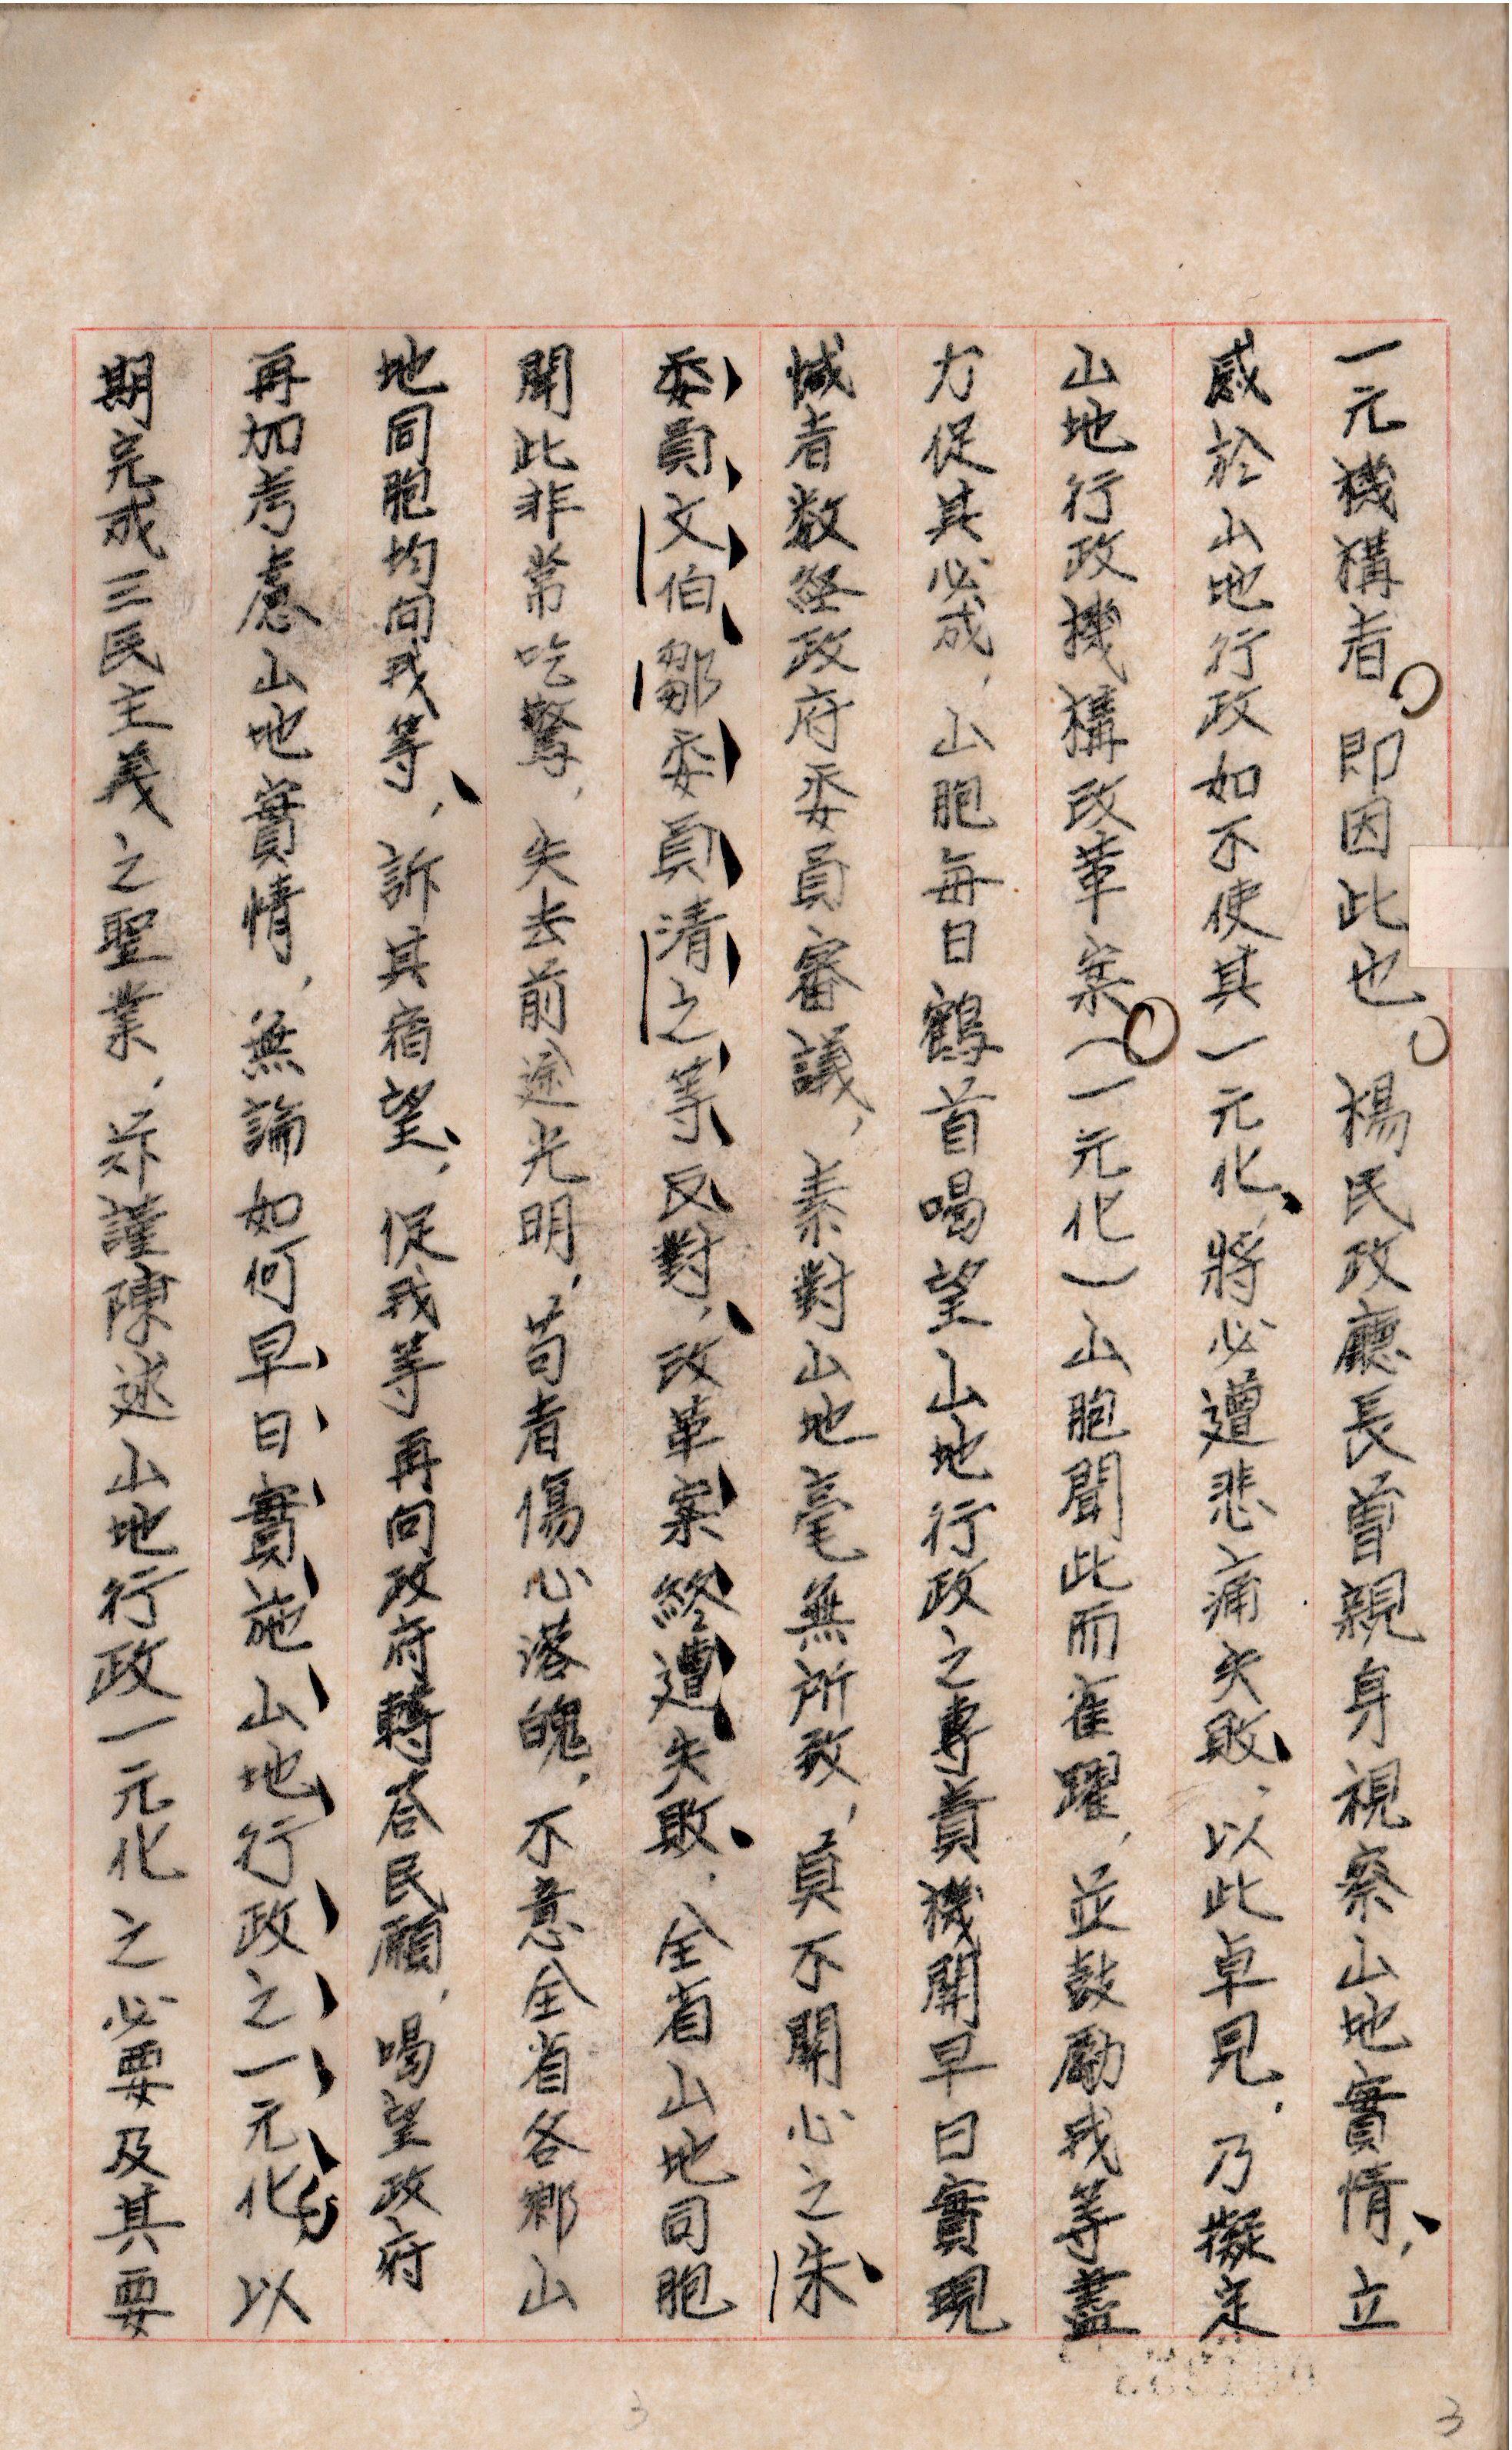 一元機構者。即因此也。楊民政廳長曾親身視察山地實情，立
感於山地行政如不使其一元化，將必遭悲痛失敗，以此卓見，乃擬定
山地行政機構改革案（一元化）山胞聞此而雀躍，並鼓勵我等盡
力促其必成，山胞每日鶴首喝望山地行政之專責機関早日實現
憾者数経政府委員審議，素對山地毫無所致，真不関心之朱
委員文伯鄒委員清之等反對，改革案終遭失敗，全省山地同胞
聞此非常吃驚，失去前途光明，苟者傷心落魄，不意全省各鄉山
地同胞均向我等，訴其宿望，促我等再向政府轉答民願，喝望政府
再加考慮山地實情，無論如何早日實施山地行政之一元化，以
期完成三民主義之聖業，茲謹陳述山地行政一元化之必要及其要
3